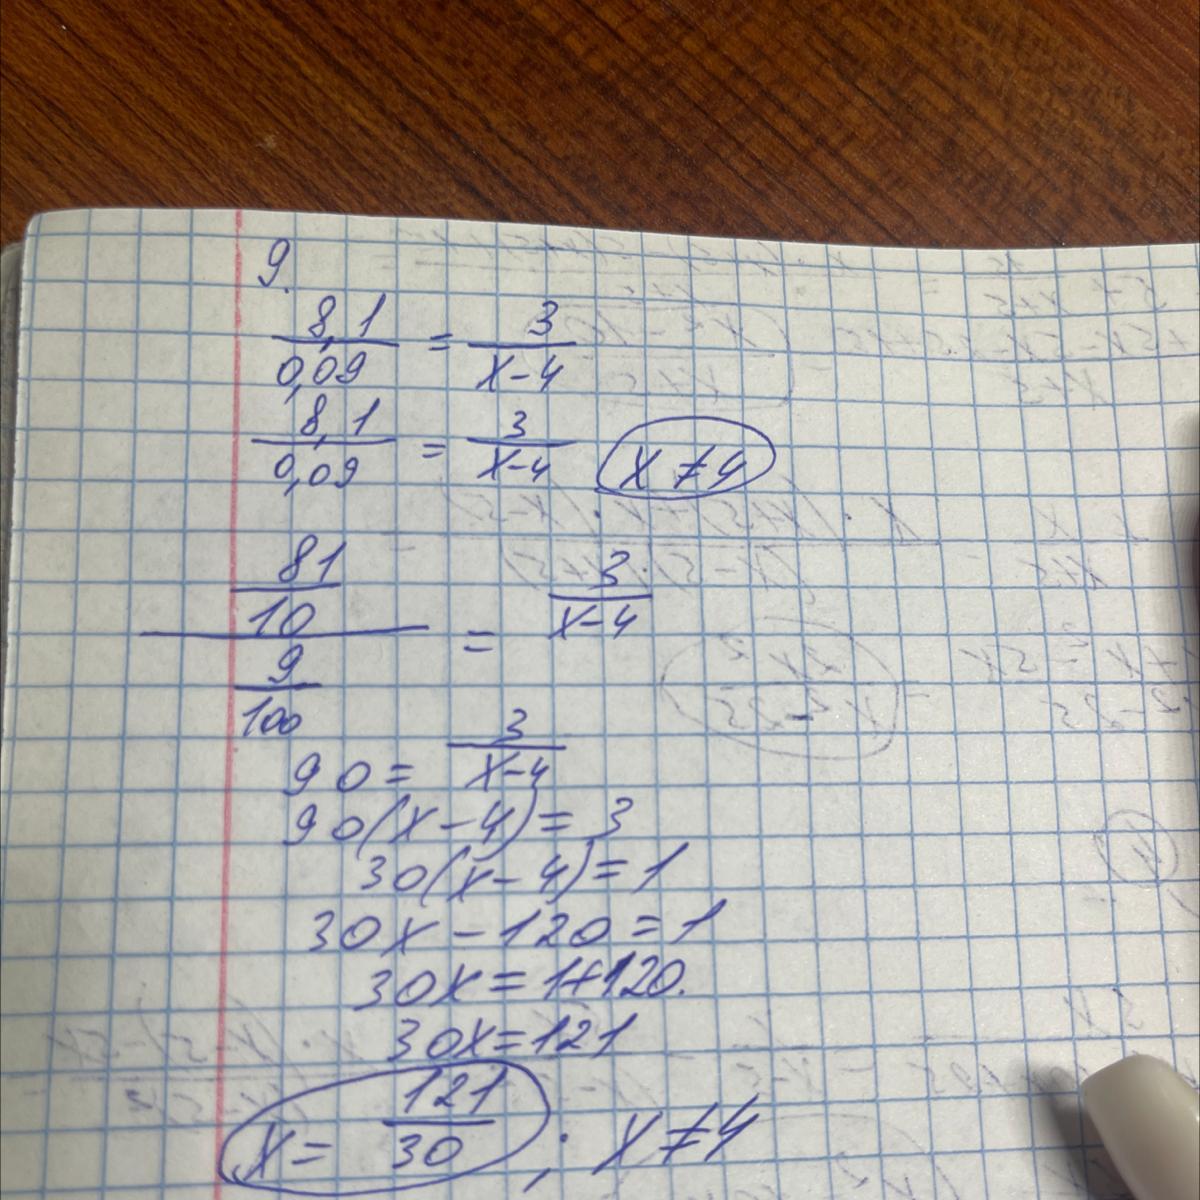 9.
8,1 / 0,09 = 3 / x-4
8,1 / 0,09 = 3 / x-4 x ≠ 4
81/10 / 9/100 = 3 / x-4
90 = 3 / x-4
90(x-4) = 3
30(x-4) = 1
30x - 120 = 1
30x = 1+120.
30x = 121
x = 121/30 ; x ≠ 4